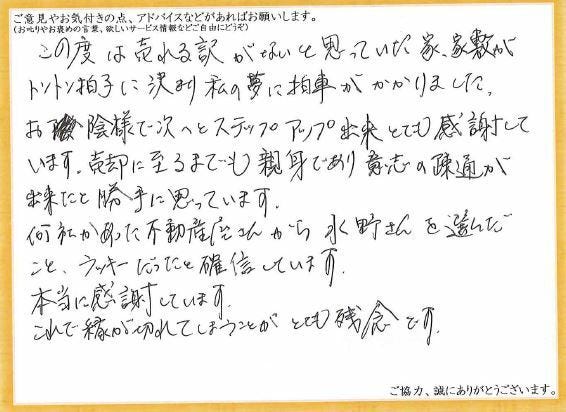 ご意見やお気付きの点、アドバイスなどがあればお願いします。
(お叱りやお褒めの言葉、欲しいサービス情報などご自由にどうぞ)
この度は売れる訳がないと思っていた家、家敷が
トントン拍子に決まり私の夢に拍車がかかりました。
お陰様で次へとステップアップ出来とても感謝して
います。売却に至るまでも親身であり意志の疎通が
出来たと勝手に思っています。
何社かあった不動産屋さんから水野さんを選んだ
こと、ラッキーだったと確信しています。
本当に感謝しています。
これで縁が切れてしまうことがとても残念です。
ご協力、誠にありがとうございます。